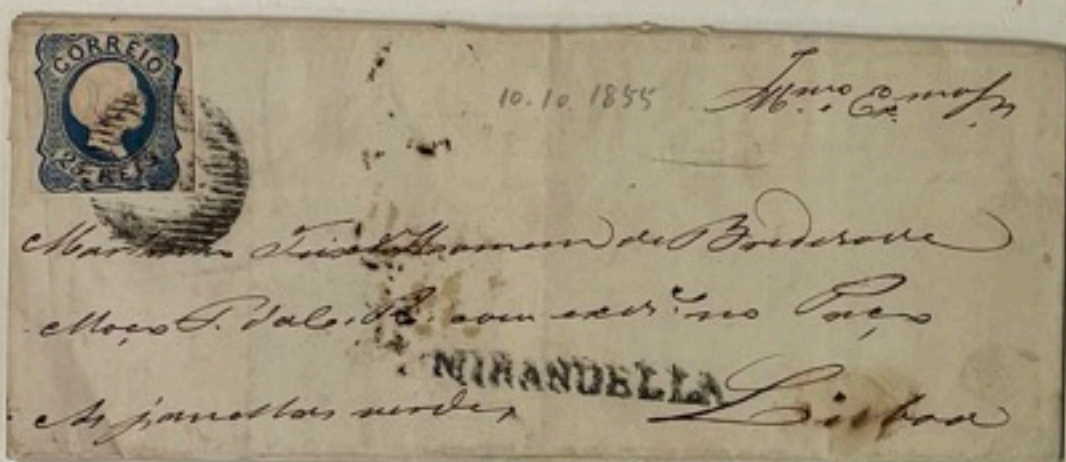 CORREIO
25 REIS
10.10 1855
Illmo. Exmo. Sr.
Martinho Teixª Homem de Brederode
Moço F. da C. R. com exerº no Paço
MIRANDELLA
As janellas verdes Lisboa